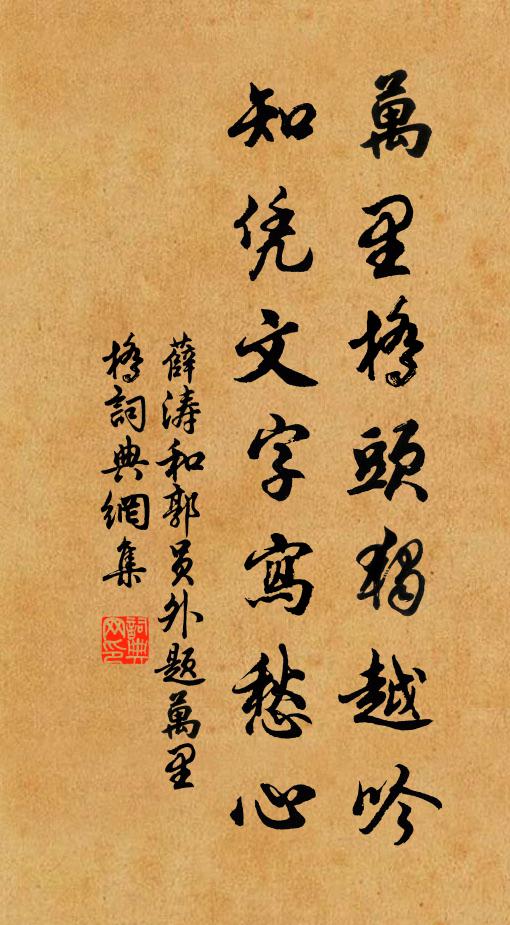 萬里橋頭獨越吟
知凭文字寫愁心
薛濤和郭員外題萬里
橋詞典網集
詞典
网印